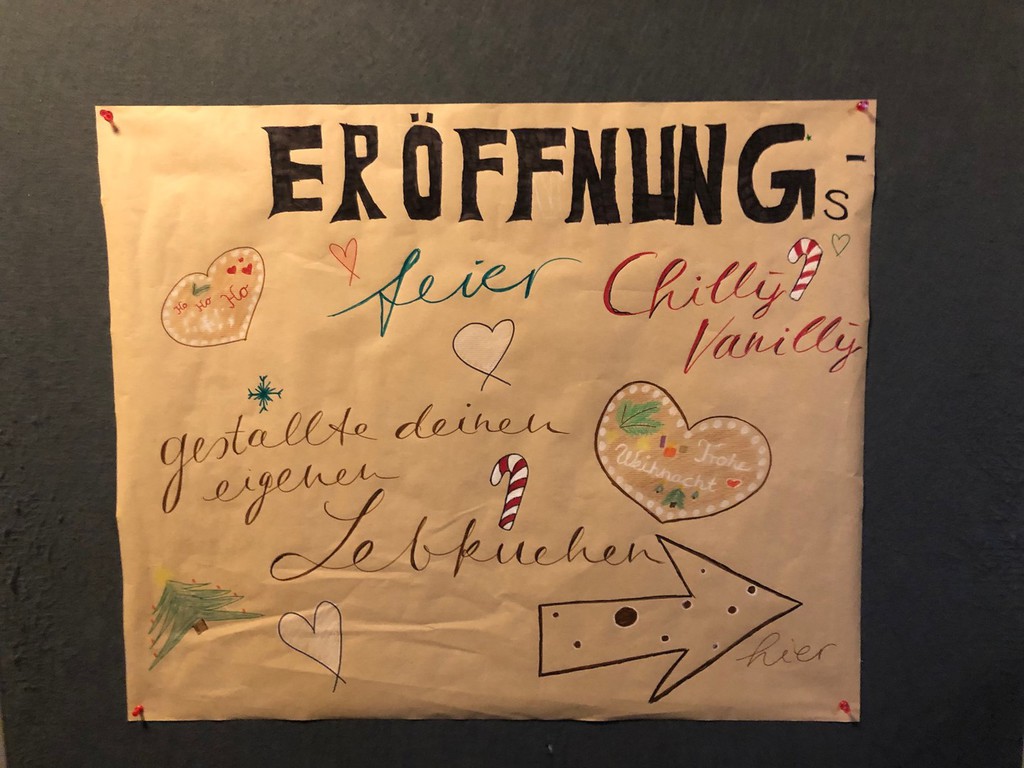 ERÖFFNUNGS-
feier
Chilly
Vanilly
Ho Ho Ho
gestallte deinen
eigenen
Lebkuchen
Frohe
Weihnacht
hier